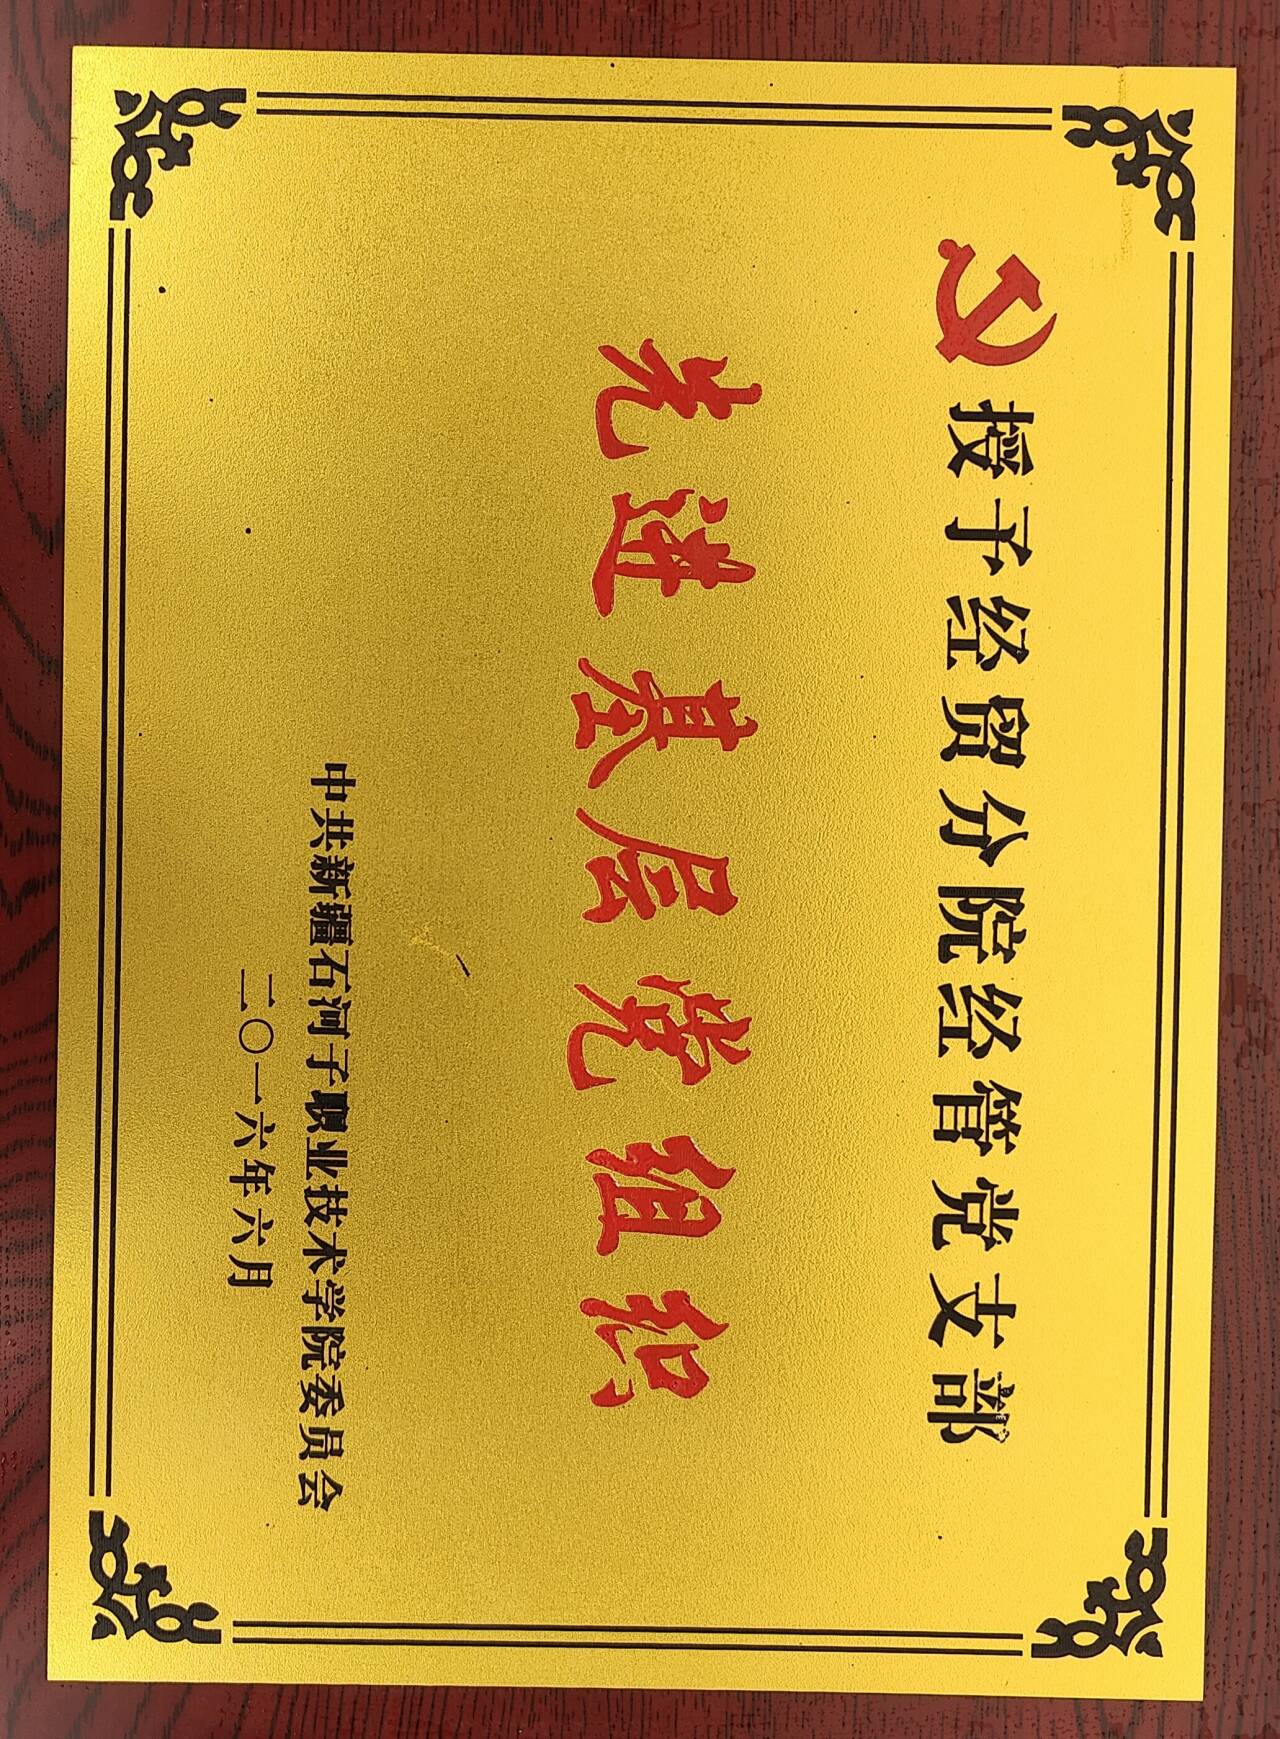 授予经贸分院经管党支部
先进基层党组织
中共新疆石河子职业技术学院委员会
二〇一六年六月